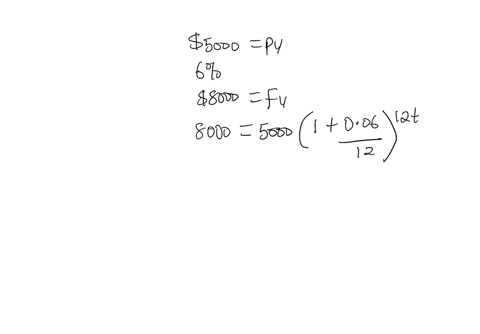 $5000 = PV
6%
$8000 = FV
8000 = 5000 (1 + 0.06/12)^12t